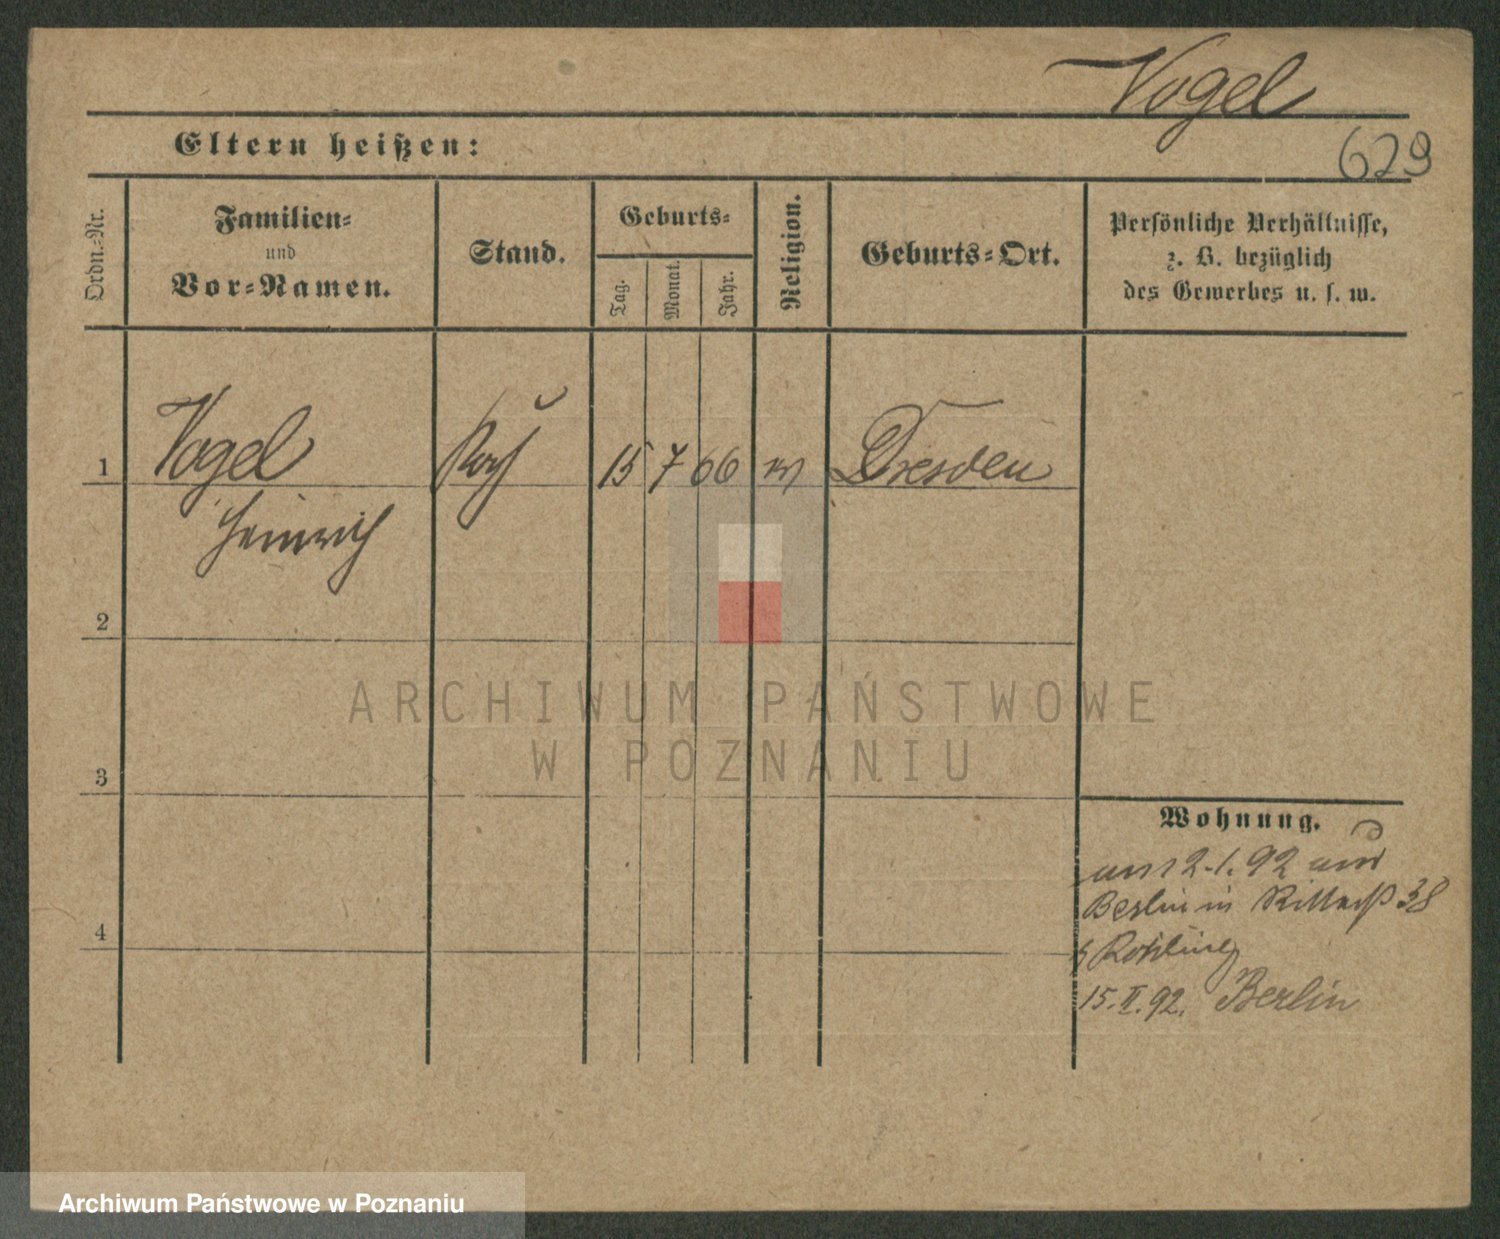 Vogel
Eltern heißen:
629
Ordn.=Nr.
Familien=
und
Vor=Namen.
Stand.
Geburts=
Tag.
Monat.
Jahr.
Religion.
Geburts=Ort.
Persönliche Verhältnisse,
z. B. bezüglich
des Gewerbes u. s. w.
1
Vogel
Heinrich
Koch
15 7 66
Dresden
2
3
4
ARCHIWUM PAŃSTWOWE
W POZNANIU
Wohnung.
2.1.92 aus
Berlin in 38
15.II.92. Berlin
Archiwum Państwowe w Poznaniu